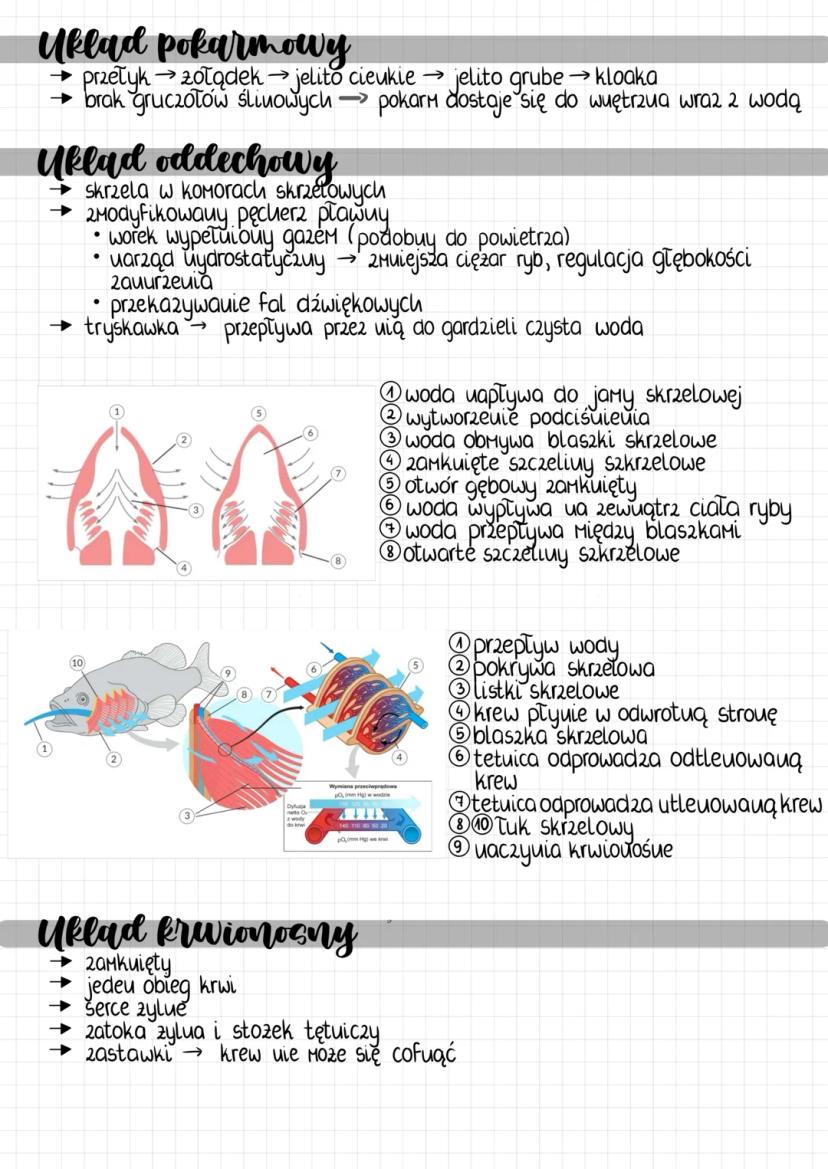 Układ pokarmowy
→ przełyk → żołądek → jelito cienkie → jelito grube → kloaka
→ brak gruczołów ślinowych → pokarm dostaje się do wnętrzna wraz z wodą
Układ oddechowy
→ skrzela w komorach skrzelowych
→ zmodyfikowany pęcherz pławny
• worek wypełniony gazem (podobny do powietrza)
• narząd hydrostatyczny → zmniejsza ciężar ryb, regulacja głębokości
zanurzenia
• przekazywanie fal dźwiękowych
→ tryskawka → przepływa przez nią do gardzieli czysta woda
1
2
3
4
5
6
7
8
① woda napływa do jamy skrzelowej
② wytworzenie podciśnienia
③ woda obmywa blaszki skrzelowe
④ zamknięte szczeliny szkrzelowe
⑤ otwór gębowy zamknięty
⑥ woda wypływa na zewnątrz ciała ryby
⑦ woda przepływa między blaszkami
⑧ otwarte szczeliny szkrzelowe
10
1
2
9
8
7
3
6
5
4
Wymiana przeciwprądowa
pO₂ (mm Hg) w wodzie
Dyfuzja
netto O₂
z wody
do krwi
140 110 80 50 20
pO₂ (mm Hg) we krwi
① przepływ wody
② pokrywa skrzelowa
③ listki skrzelowe
④ krew płynie w odwrotną stronę
⑤ blaszka skrzelowa
⑥ tetnica odprowadza odtlenowaną
krew
⑦ tetnica odprowadza utlenowaną krew
⑧ ⑩ łuk skrzelowy
⑨ naczynia krwionośne
Układ krwionosny
→ zamknięty
→ jeden obieg krwi
→ serce żylne
→ zatoka żylna i stożek tętniczy
→ zastawki → krew nie może się cofnąć